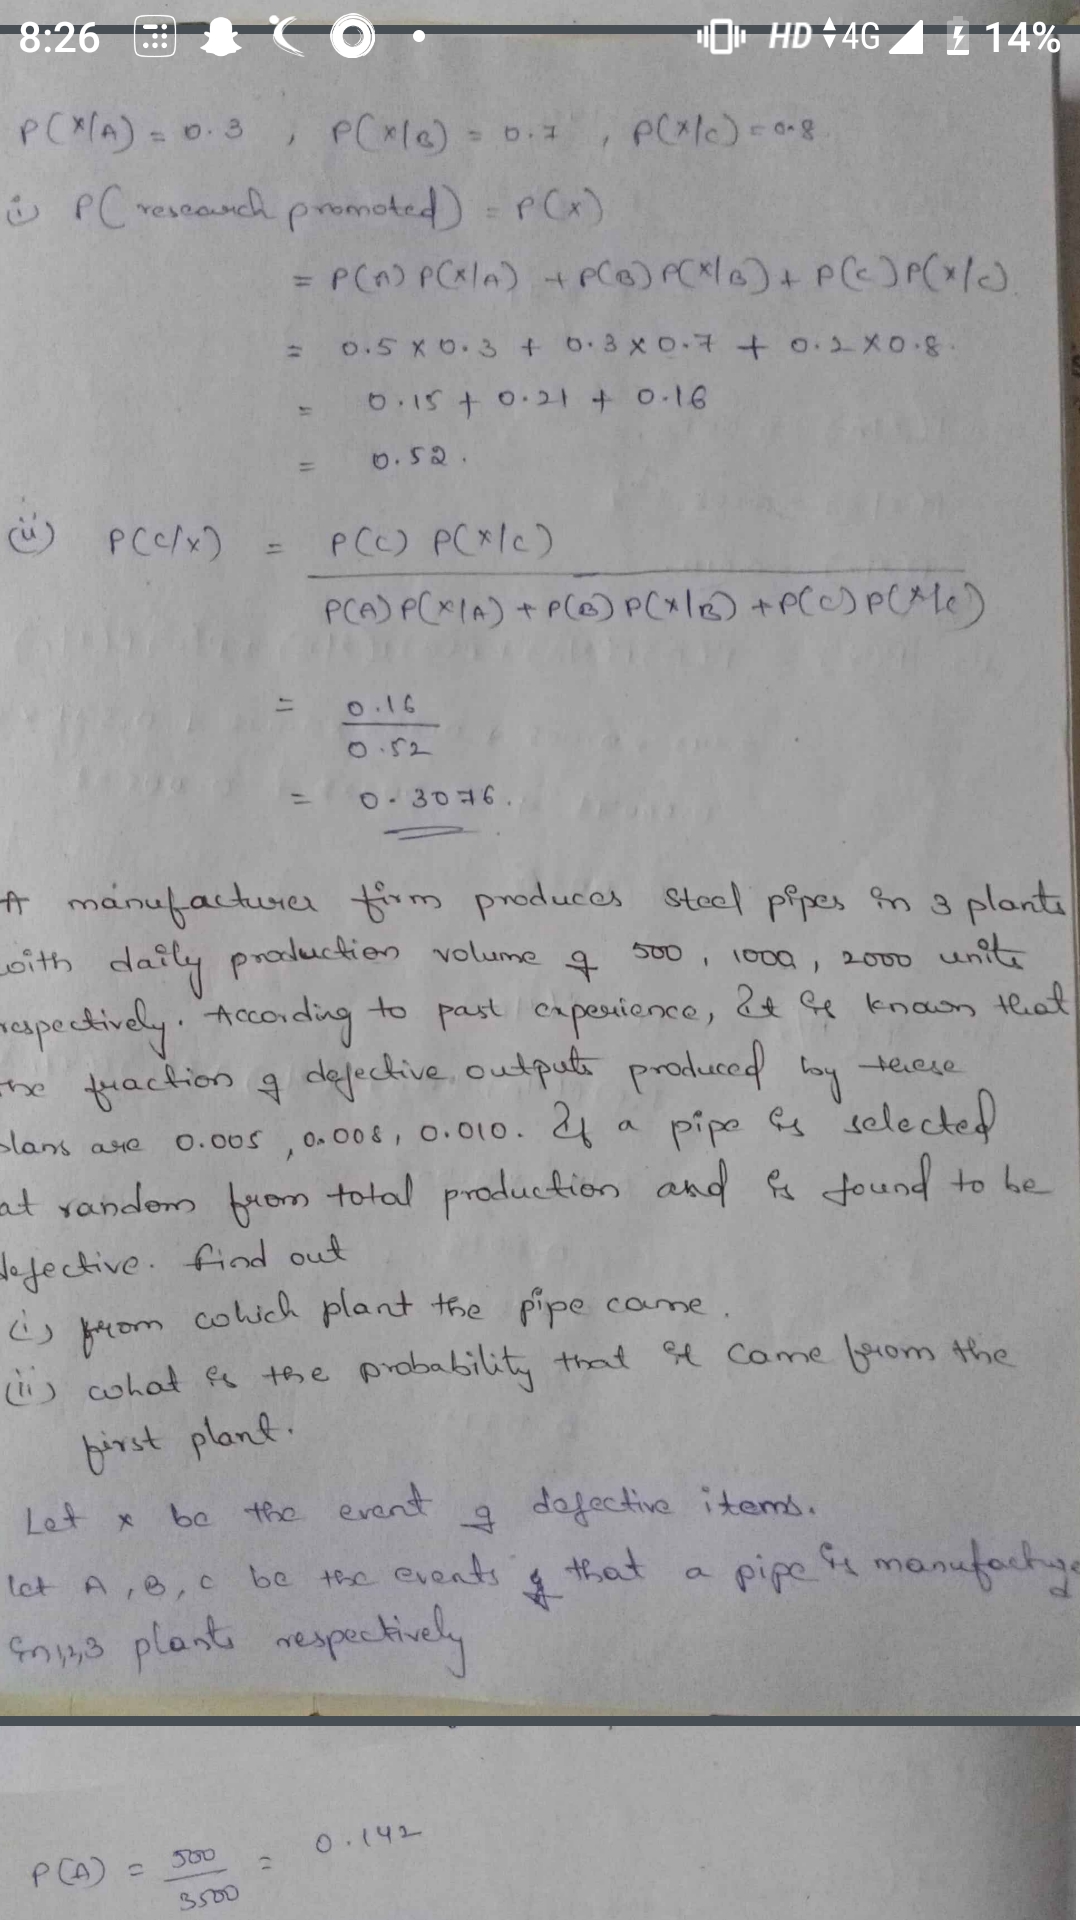 8:26 HD 4G 14%
P(X/A) = 0.3 , P(X/B) = 0.7 , P(X/C) = 0.8
i) P(research promoted) = P(X)
= P(A) P(X/A) + P(B) P(X/B) + P(C) P(X/C)
= 0.5 X 0.3 + 0.3 X 0.7 + 0.2 X 0.8.
= 0.15 + 0.21 + 0.16
= 0.52.
(ii) P(C/X) = P(C) P(X/C)
P(A) P(X/A) + P(B) P(X/B) + P(C) P(X/C)
= 0.16
0.52
= 0.3076.
A manufacturer firm produces steel pipes in 3 plants
with daily production volume of 500, 1000, 2000 units
respectively. According to past experience, It is known that
the fraction of defective outputs produced by these
plans are 0.005, 0.008, 0.010. If a pipe is selected
at random from total production and is found to be
defective. find out
(i) from which plant the pipe came.
(ii) what is the probability that it came from the
first plant.
Let x be the event of defective items.
let A, B, C be the events of that a pipe is manufacture
in 1,2,3 plants respectively
P(A) = 500 = 0.142
3500